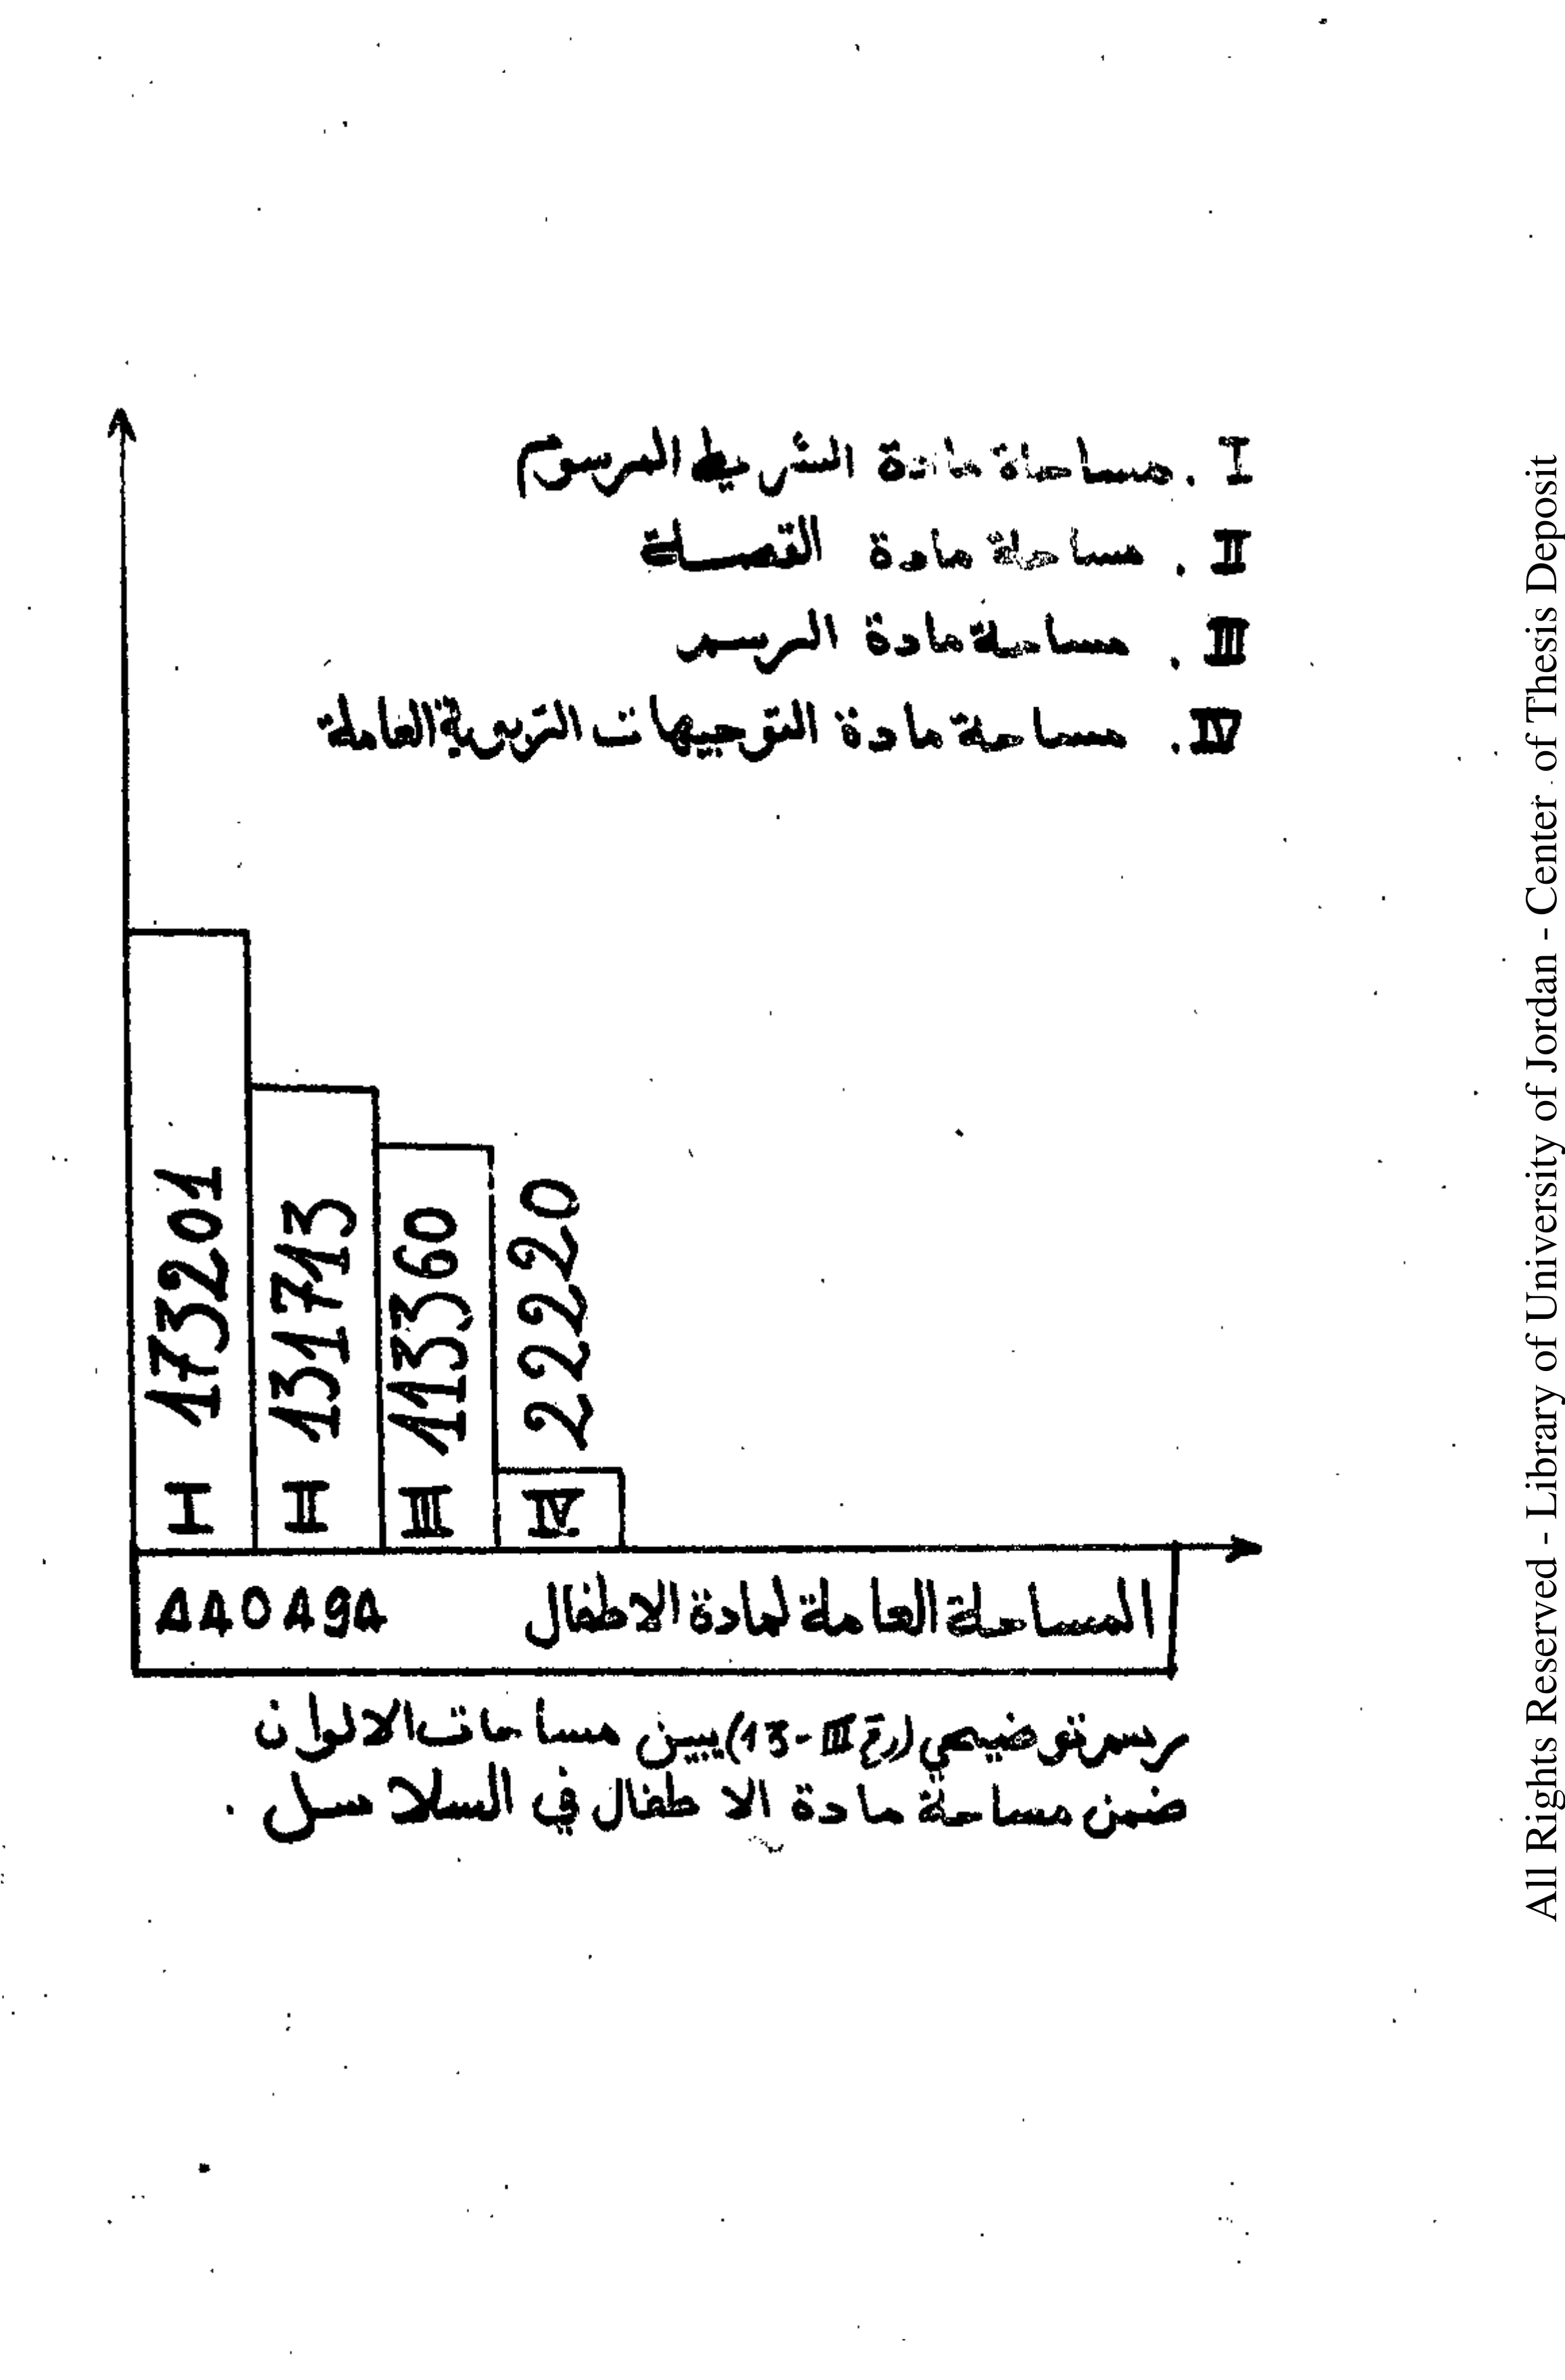 I. مساحة مادة الشريط المرسوم
II. مساحة مادة القصة
III. مساحة مادة الرسم
IV. مساحة مادة التوجيهات التربوية العامة
I 173201
II 131713
III 113360
IV 22220
المساحة العامة لمادة الاطفال 440494
رسم توضيحي (رقم III-13) يبين مساحات الالوان
ضمن مساحة مادة الاطفال في السلاسل .
All Rights Reserved - Library of University of Jordan - Center of Thesis Deposit